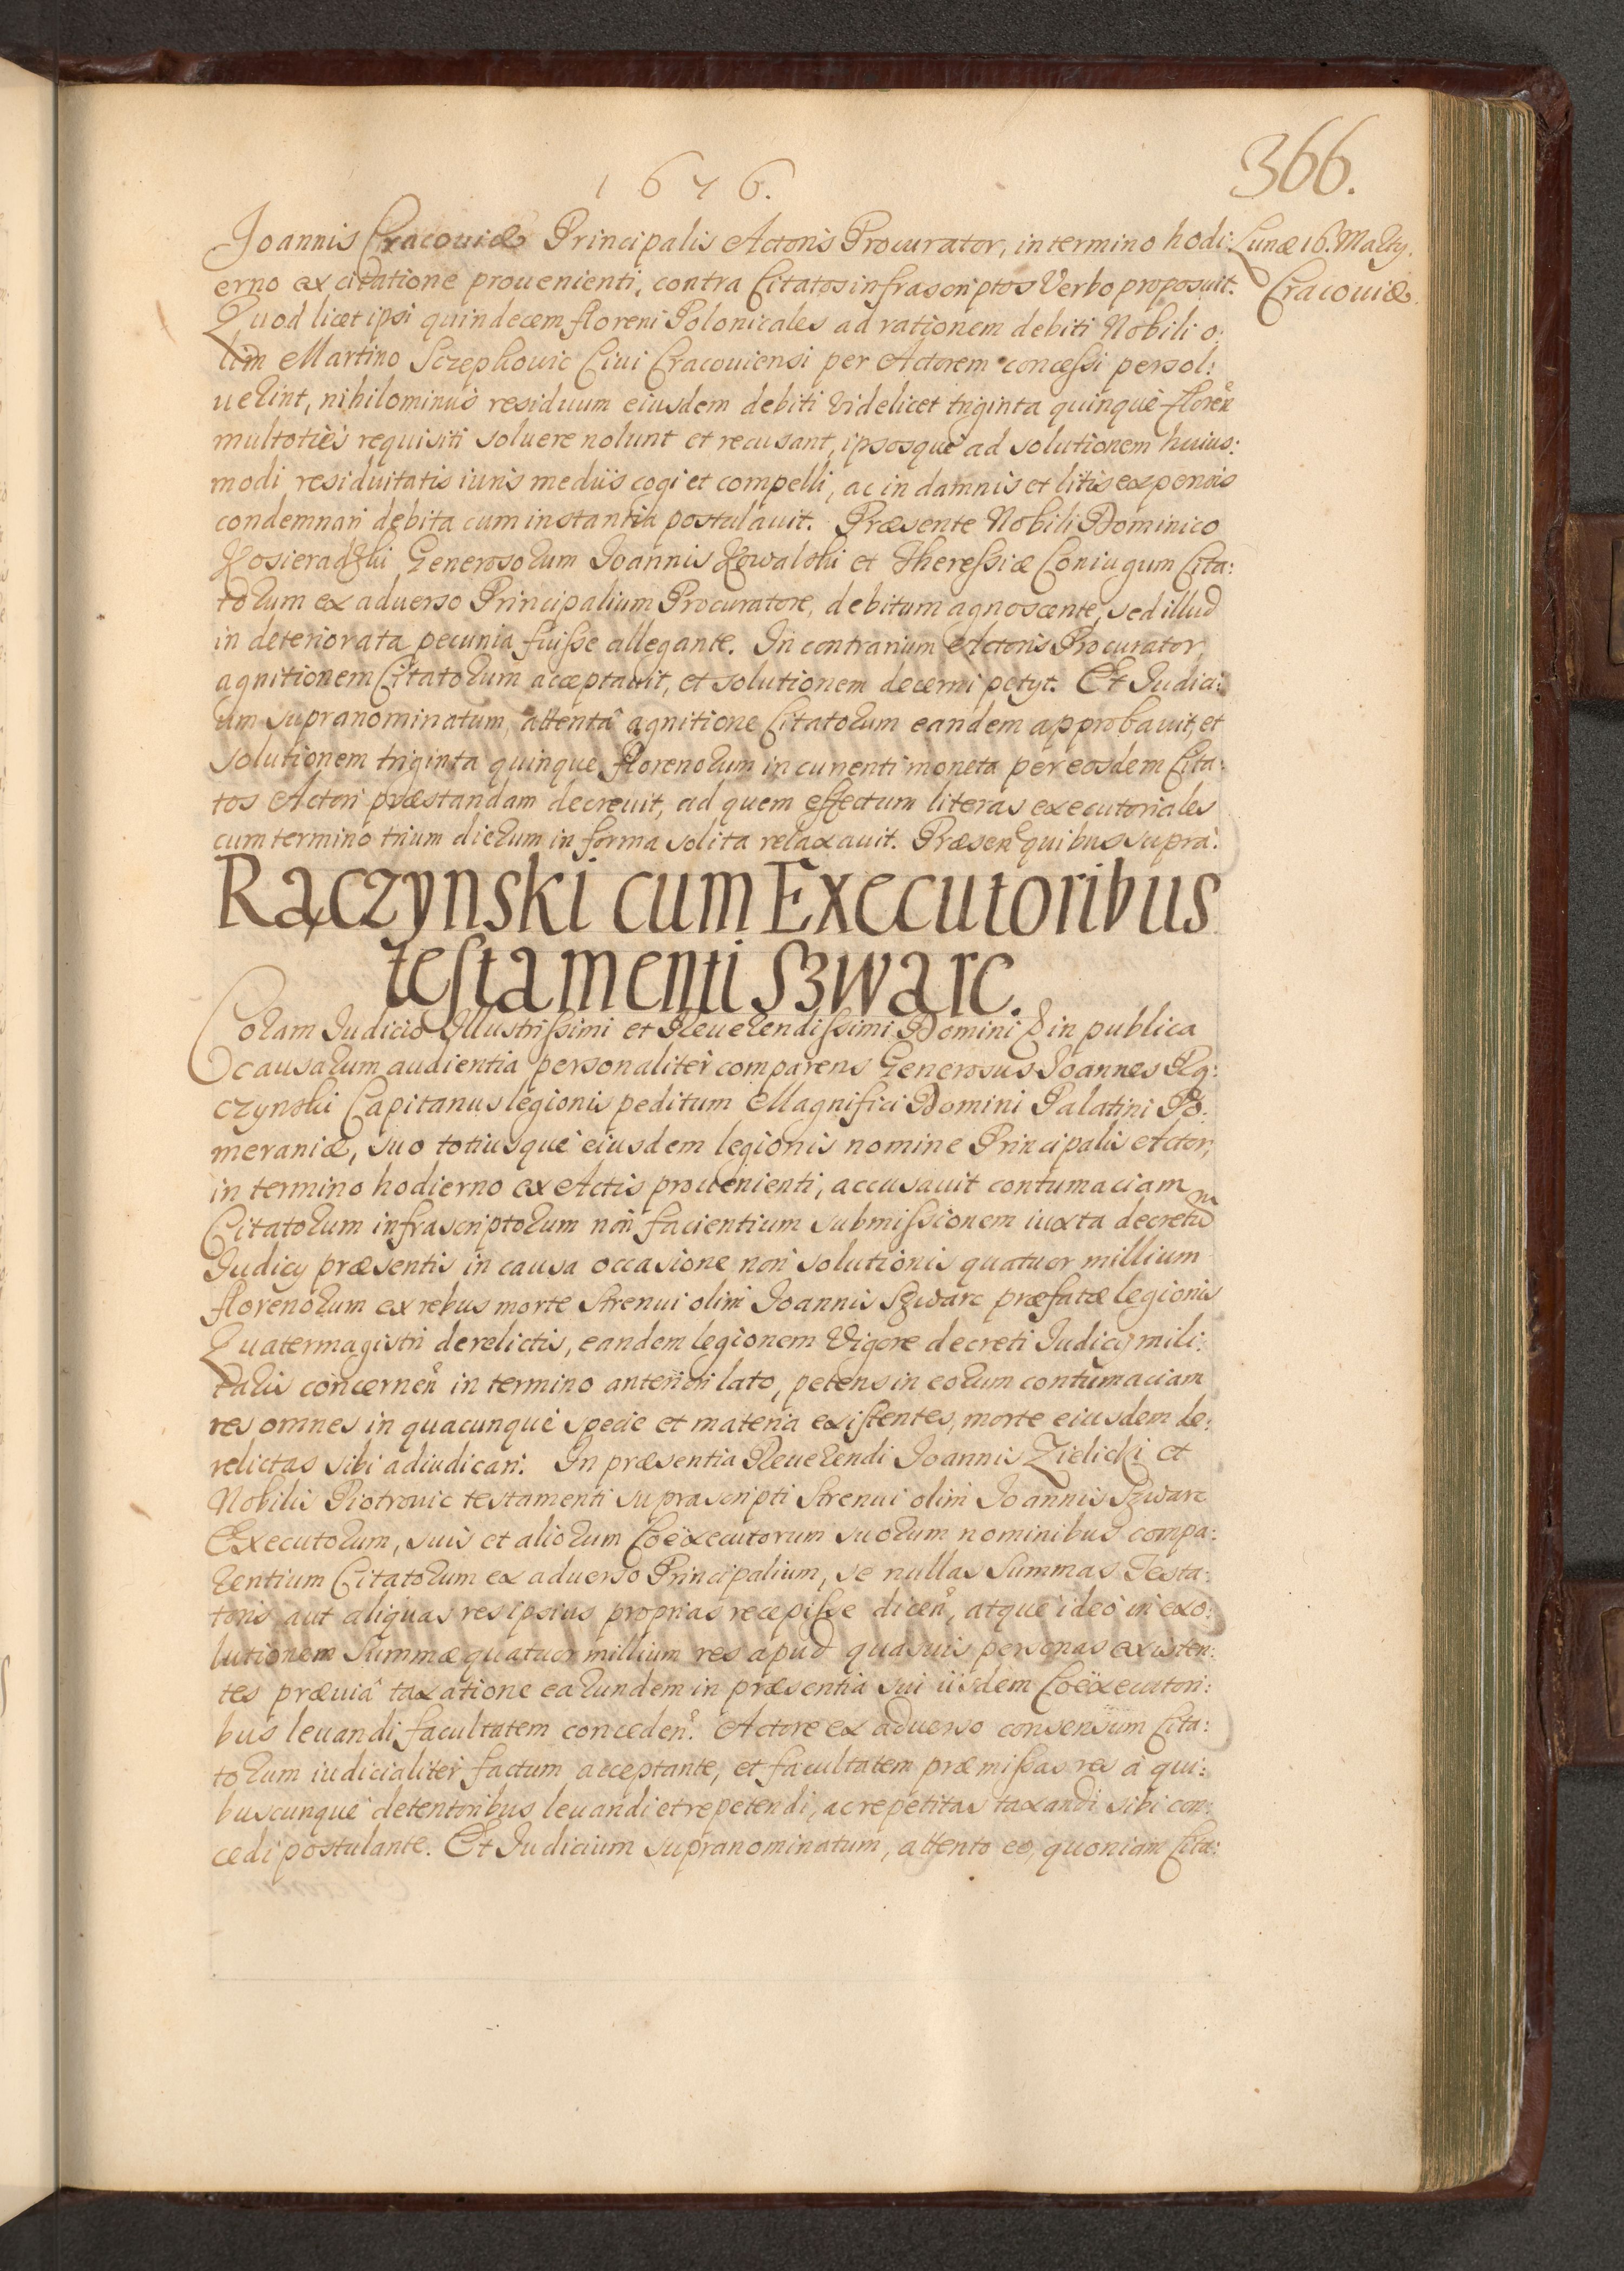 366.
1676.
Lunæ 16. Martij.
Cracouiæ.
Joannis Cracouiæ Principalis Actoris Procurator, in termino hodi:
erno ex citatione prouenienti, contra Citatos infrascriptos Verbo proposuit.
Quod licet ipsi quindecem floreni Polonicales ad rationem debiti Nobili o:
lim Martino Sczephowic Ciui Cracouiensi per Actorem concessi persol:
uerint, nihilominus residuum eiusdem debiti videlicet triginta quinque floren̄
multoties requisiti soluere nolunt et recusant, ipsosque ad solutionem huius:
modi residuitatis iuris mediis cogi et compelli, ac in damnis et litis expensis
condemnari debita cum instantia postulauit. Præsente Nobili Dominico
Kosieradzki Generosorum Joannis Kowalski et Theressiæ Coniugum Cita:
torum ex aduerso Principalium Procuratore, debitum agnoscente, sed illud
in deteriorata pecunia fuisse allegante. In contrarium Actoris Procurator
agnitionem Citatorum acceptauit, et solutionem decerni petyt. Et Judici:
um supranominatum, attentâ agnitione Citatorum eandem approbauit, et
solutionem triginta quinque florenorum in currenti moneta per eosdem Cita:
tos Actori præstandam decreuit, ad quem effectum literas executoriales
cum termino trium dierum in forma solita relaxauit. Præsen̄ quibus supra.
Rączynski cum Executoribus
testamenti Szwarc.
Coram Judicio Illustrissimi et Reuerendissimi Domini & in publica
causarum audientia personaliter comparens Generosus Joannes Rą:
czynski Capitanus legionis peditum Magnifici Domini Palatini Po:
meraniæ, suo totiusque eiusdem legionis nomine Principalis Actor,
in termino hodierno ex Actis prouenienti, accusauit contumaciam
Citatorum infrascriptorum non facientium submissionem iuxta decretum
Judicy præsentis in causa occasione non solutionis quatuor millium
florenorum ex rebus morte Strenui olim Joannis Szwarc præfatæ legionis
Quatermagistri derelictis, eandem legionem Vigore decreti Judicij mili:
taris concernen̄ in termino anteriori lato, petens in eorum contumaciam
res omnes in quacunque specie et materia existentes, morte eiusdem de:
relictas sibi adiudicari. In præsentia Reuerendi Joannis Zielicki et
Nobilis Piotrowic testamenti suprascripti Strenui olim Joannis Szwarc
Executorum, suis et aliorum Coëxecutorum suorum nominibus compa:
rentium Citatorum ex aduerso Principalium, se nullas Summas Testa:
toris aut aliquas res ipsius proprias recepisse dicen̄, atque ideo in exo:
lutionem Summæ quatuor millium res apud quasuis personas existen:
tes præuiâ taxatione earundem in præsentia sui iisdem Coëxecutori:
bus leuandi facultatem conceden̄. Actore ex aduerso consensum Cita:
torum iudicialiter factum acceptante, et facultatem præmissas res à qui:
buscunque detentoribus leuandi et repetendi, ac repetitas taxandi sibi con:
cedi postulante. Et Judicium supranominatum, attento eo, quoniam Cita: